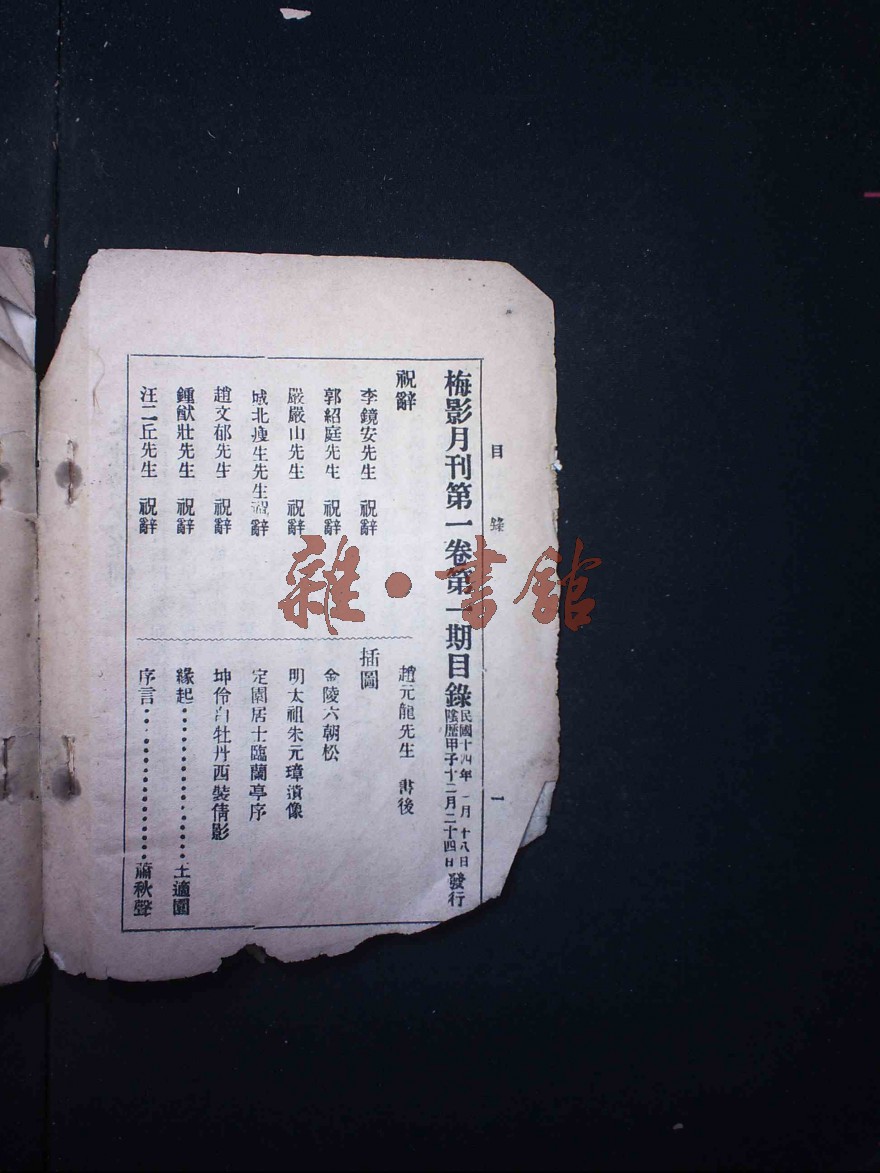 目錄
一
梅影月刊第一卷第一期目錄
民國十四年一月十八日
陰歷甲子十二月二十四日
發行
祝辭
李鏡安先生 祝辭
郭紹庭先生 祝辭
嚴嚴山先生 祝辭
城北瘦生先生祝辭
趙文郁先生 祝辭
鍾猷壯先生 祝辭
汪二丘先生 祝辭
趙元龍先生 書後
插圖
金陵六朝松
明太祖朱元璋遺像
定園居士臨蘭亭序
坤伶白牡丹西裝倩影
緣起……………王適園
序言……………蕭秋聲
雜·書館